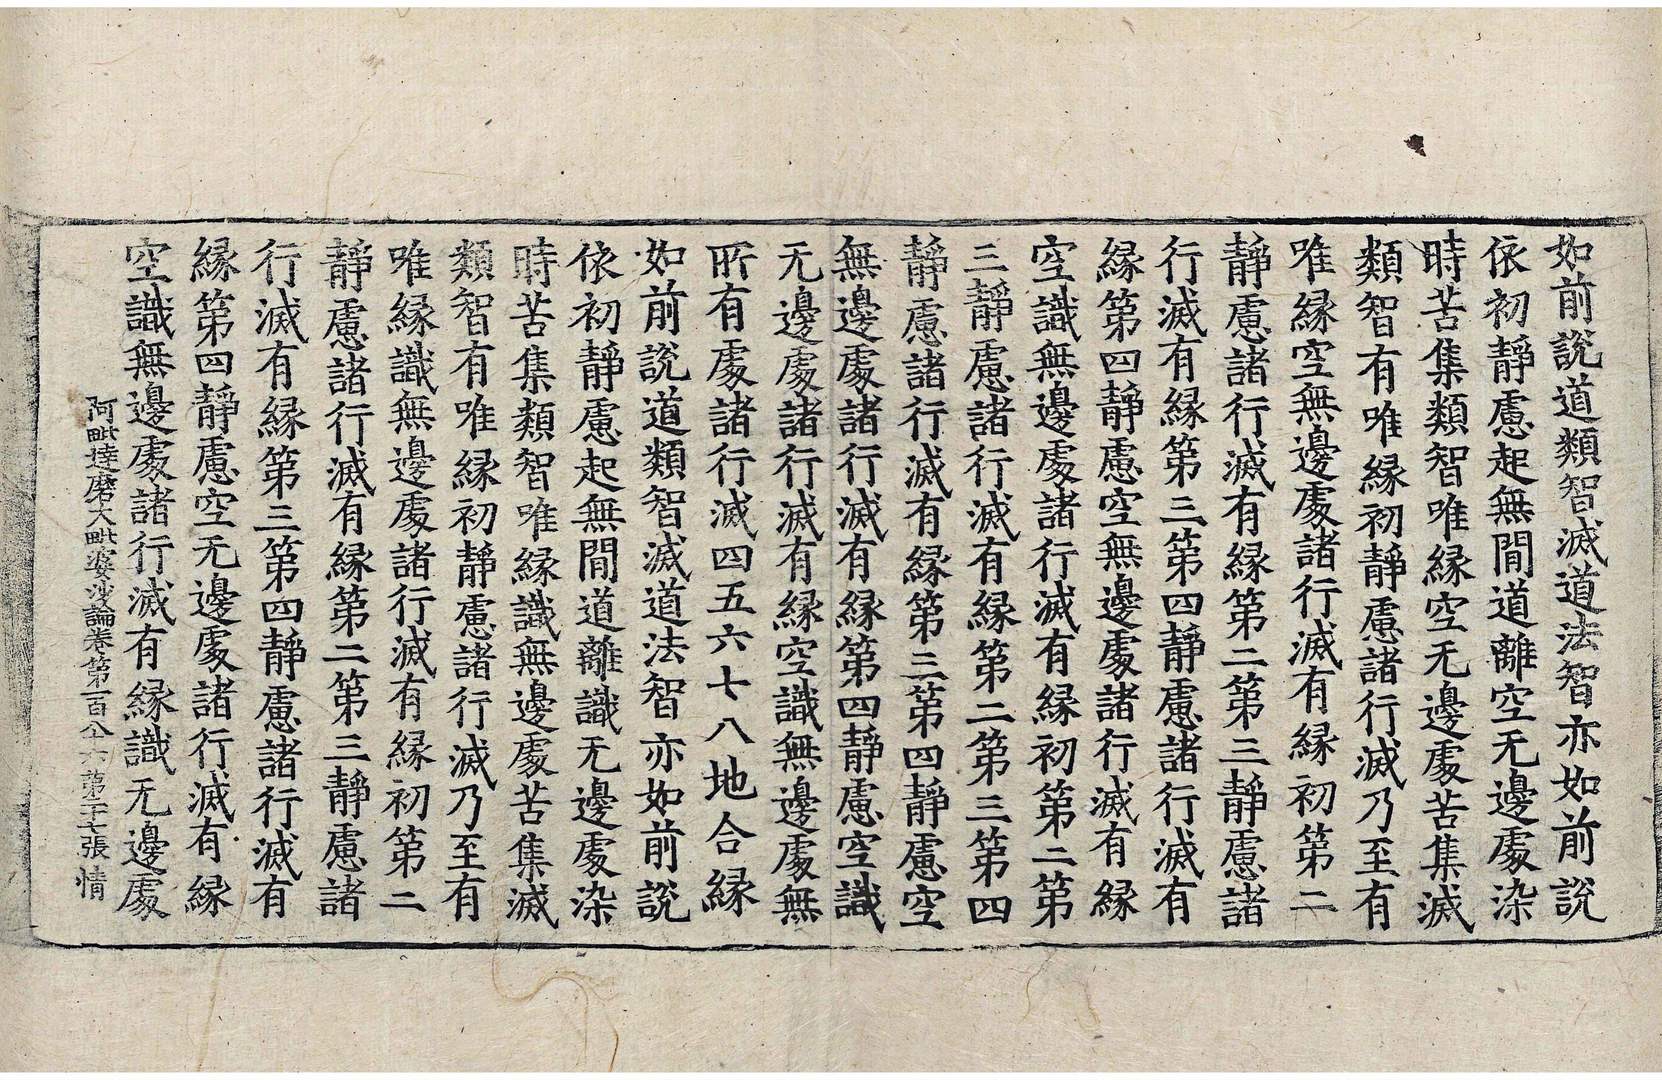 如前說道類智滅道法智亦如前說
依初靜慮起無間道離空无邊處染
時苦集類智唯緣空无邊處苦集滅
類智有唯緣初靜慮諸行滅乃至有
唯緣空無邊處諸行滅有緣初第二
靜慮諸行滅有緣第二第三靜慮諸
行滅有緣第三第四靜慮諸行滅有
緣第四靜慮空無邊處諸行滅有緣
空識無邊處諸行滅有緣初第二第
三靜慮諸行滅有緣第二第三第四
靜慮諸行滅有緣第三第四靜慮空
無邊處諸行滅有緣第四靜慮空識
无邊處諸行滅有緣空識無邊處無
所有處諸行滅四五六七八地合緣
如前說道類智滅道法智亦如前說
依初靜慮起無間道離識无邊處染
時苦集類智唯緣識無邊處苦集滅
類智有唯緣初靜慮諸行滅乃至有
唯緣識無邊處諸行滅有緣初第二
靜慮諸行滅有緣第二第三靜慮諸
行滅有緣第三第四靜慮諸行滅有
緣第四靜慮空无邊處諸行滅有緣
空識無邊處諸行滅有緣識无邊處
阿毗達磨大毗婆沙論卷第一百八十六 第二十七張 情